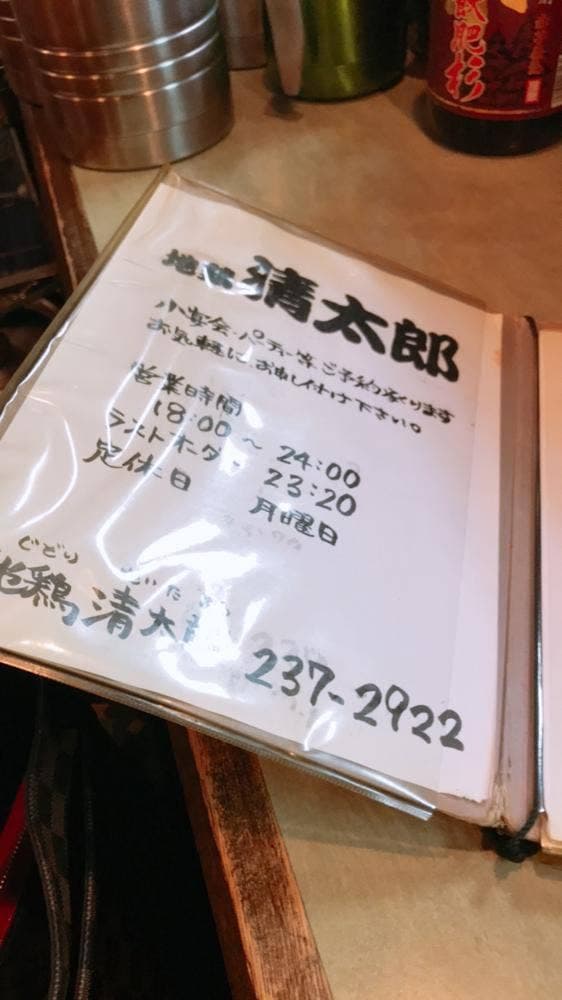 飫肥杉
地鶏 清太郎
小宴会・パーティー等ご予約承ります
お気軽に、お申し付け下さい。
営業時間
18:00～24:00
ラストオーダー 23:20
定休日 月曜日
じどり せいたろう
地鶏 清太郎 237-2922